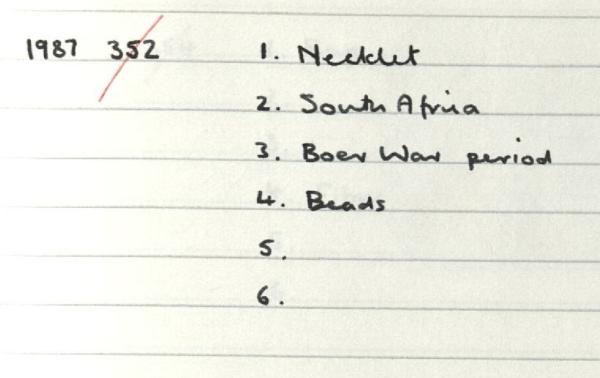 1987 352 1. Necklet
2. South Africa
3. Boer War period
4. Beads
5.
6.